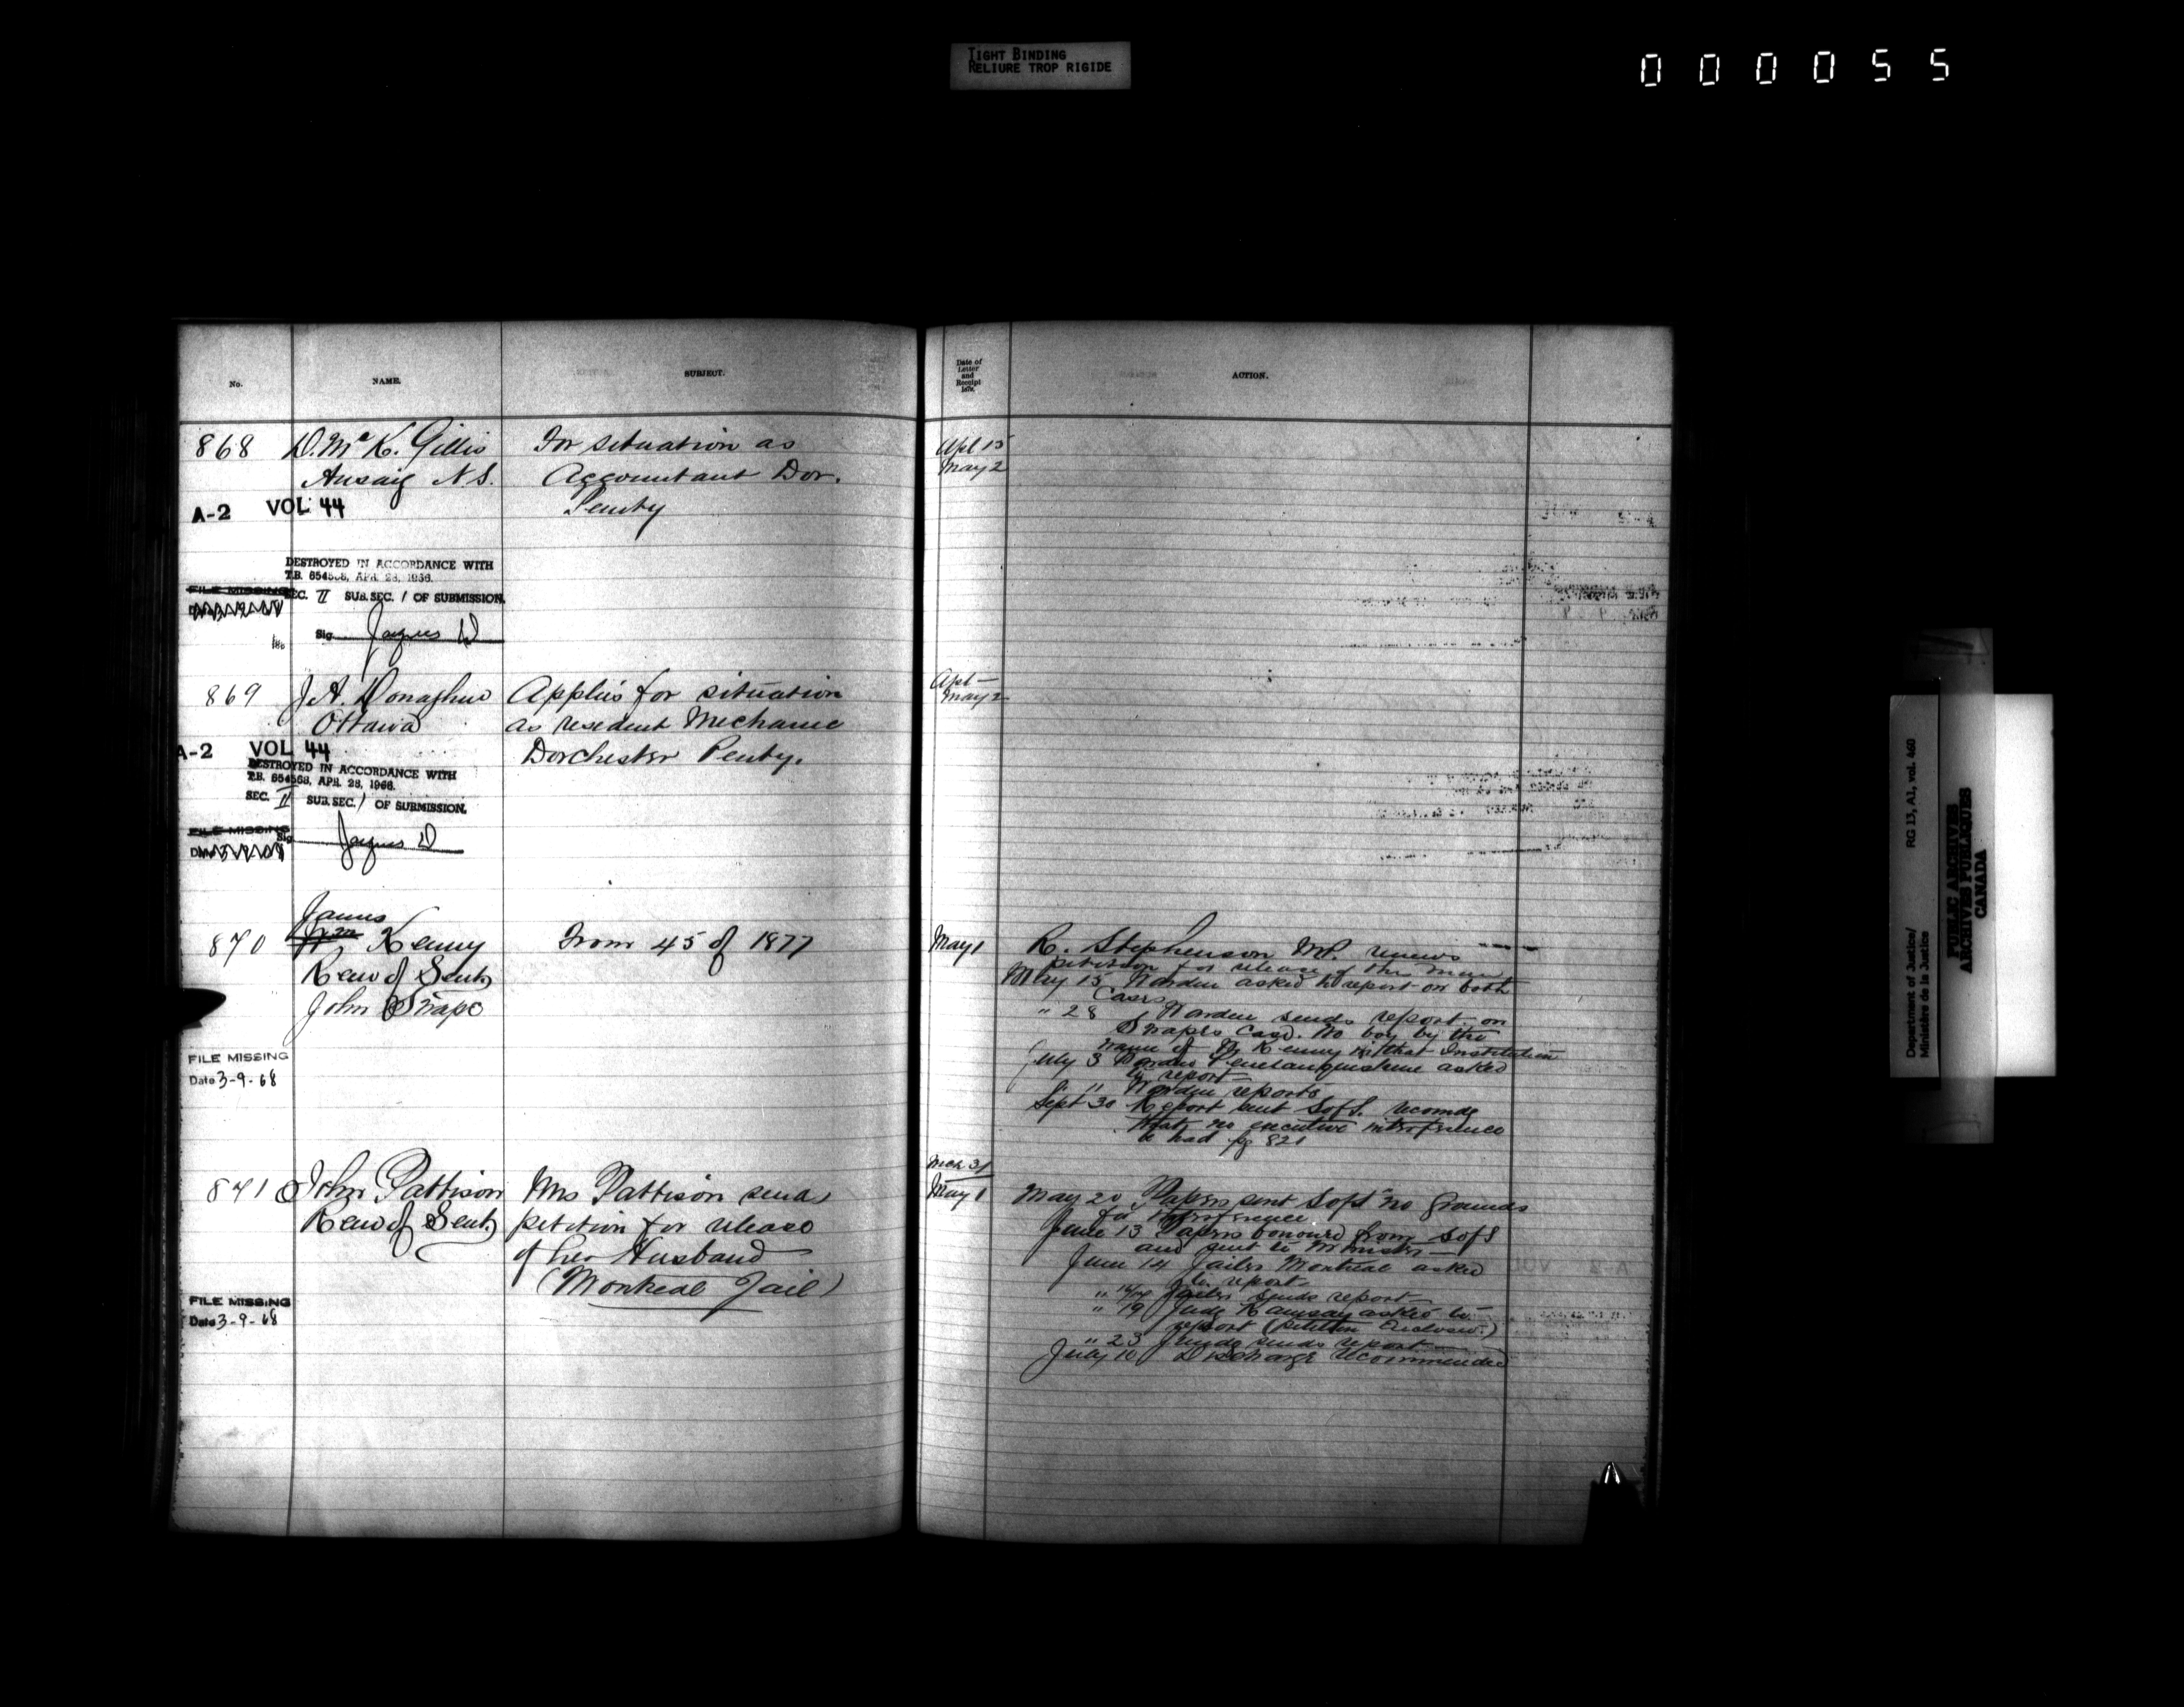 TIGHT BINDING
RELIURE TROP RIGIDE
000055
No.
NAME.
SUBJECT.
Date of
Letter
and
Receipt
187
ACTION.
868 D. McK. Gillis For situation as Apl 15
Arisaig N.S. Accountant Dor. May 2
A-2 VOL 44 Penty
DESTROYED IN ACCORDANCE WITH
T.B. 654568, APR. 28, 1966.
FILE MISSING
SEC. II SUB. SEC. / OF SUBMISSION.
Sig. Jacques D
869 J. A. Donaghue Applies for situation Apl —
Ottawa as resident Mechanic May 2
A-2 VOL 44 Dorchester Penty.
DESTROYED IN ACCORDANCE WITH
T.B. 654568, APR. 28, 1966.
SEC. II SUB. SEC. / OF SUBMISSION.
FILE MISSING
Sig. Jacques D
James
870 Kenny From 45 of 1877 May 1 R. Stephenson M.P. renews
Rem of Sent petition for release of the men
John Snape May 15 Warden asked to report on both
Cases
" 28 Warden sends report on
Snapes Case. No boy by the
name of Kenny in that Institution
FILE MISSING
Date 3-9-68
July 3 Warden Penetanguishene asked
to report
" 11 Warden reports
Sept 30 Report sent S of S. recomdg
that no executive interference
be had pg 821
Mch 31
871 John Pattison Mrs Pattison sends May 1 May 20 Papers sent S of S "no grounds
Rem of Sent petition for release for interference
of her Husband June 13 Papers from S of S
and sent to Minister —
(Montreal Jail) June 14 Jailer Montreal asked
to report
FILE MISSING
Date 3-9-68
" Jailer sends report
" 19 Judge Ramsay asked to
report (petition Enclosed.)
" 23 Judge sends report —
July 10 Discharge recommended
Department of Justice/ RG 13, A1, vol. 460
Ministère de la Justice
PUBLIC ARCHIVES
ARCHIVES PUBLIQUES
CANADA